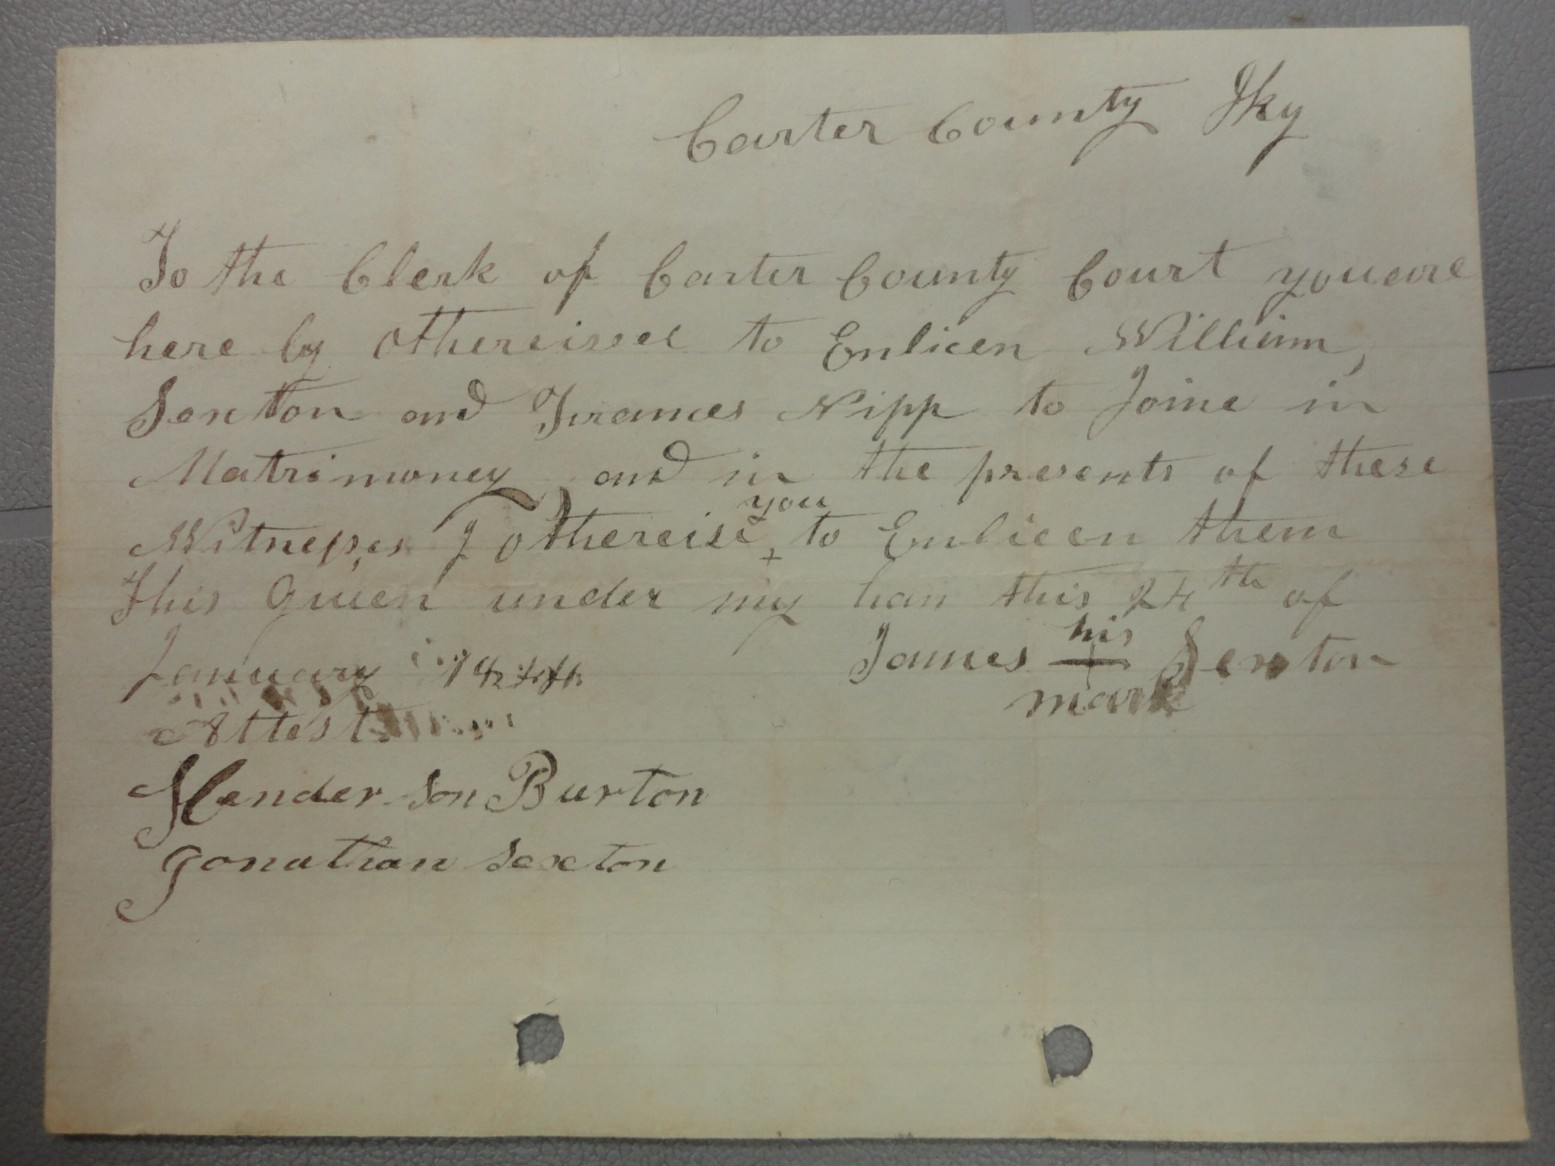 Carter County Ky
To the Clerk of Carter County Court you are
here by othereised to Enlicen William,
Sexton and Frances Nipp to Joine in
Matrimoney and in the presents of these
Witnesses I othereise you to Enlicen them
This Given under my han this 24th of
January
James his Sexton
mark
Attest
Henderson Burton
Jonathan Sexton